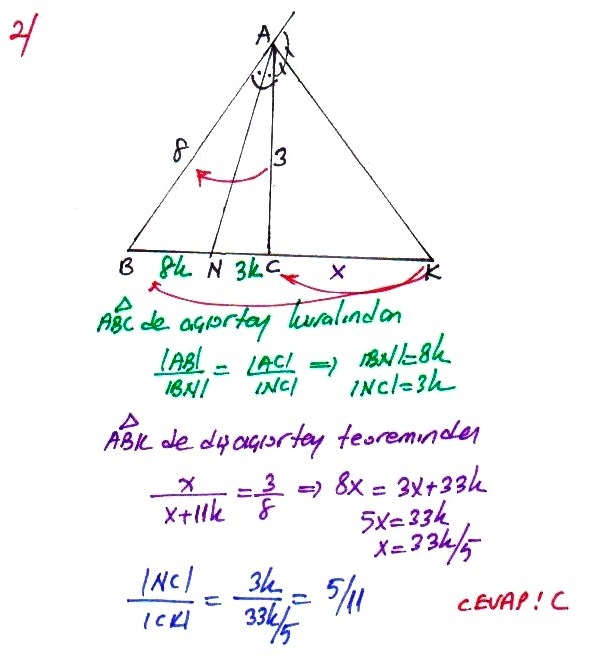 2/
A
x
x
8
3
B 8k N 3k C x K
△
ABC de açıortay kuralından
|AB| / |BN| = |AC| / |NC| ⇒ |BN|=8k
|NC|=3k
△
ABK de dışaçıortay teoreminden
x / x+11k = 3/8 ⇒ 8x = 3x+33k
5x=33k
x=33k/5
|NC| / |CK| = 3k / 33k/5 = 5/11
CEVAP! C